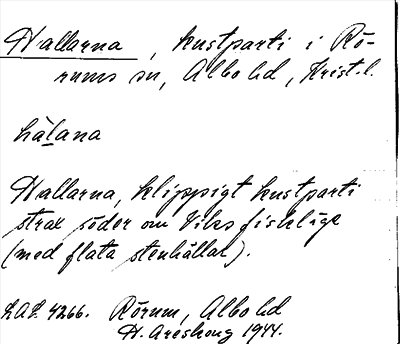 Hallarna, kustparti i Rö-
rums sn, Albo hd, Krist. l.
hàlana
Hallarna, klippigt kustparti
strax söder om Viks fiskläge
(med flata stenhällar).
LAL 4266. Rörum, Albo hd
H. Areskoug 1944.